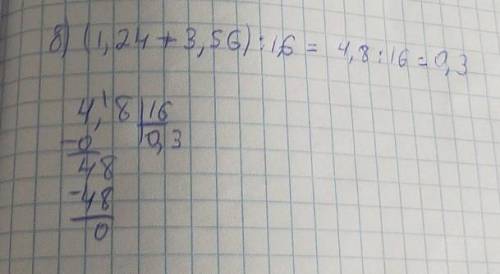 б) (1,24 + 3,56) : 16 = 4,8 : 16 = 0,3
4,8 | 16
- 0 | 0,3
48
- 48
0